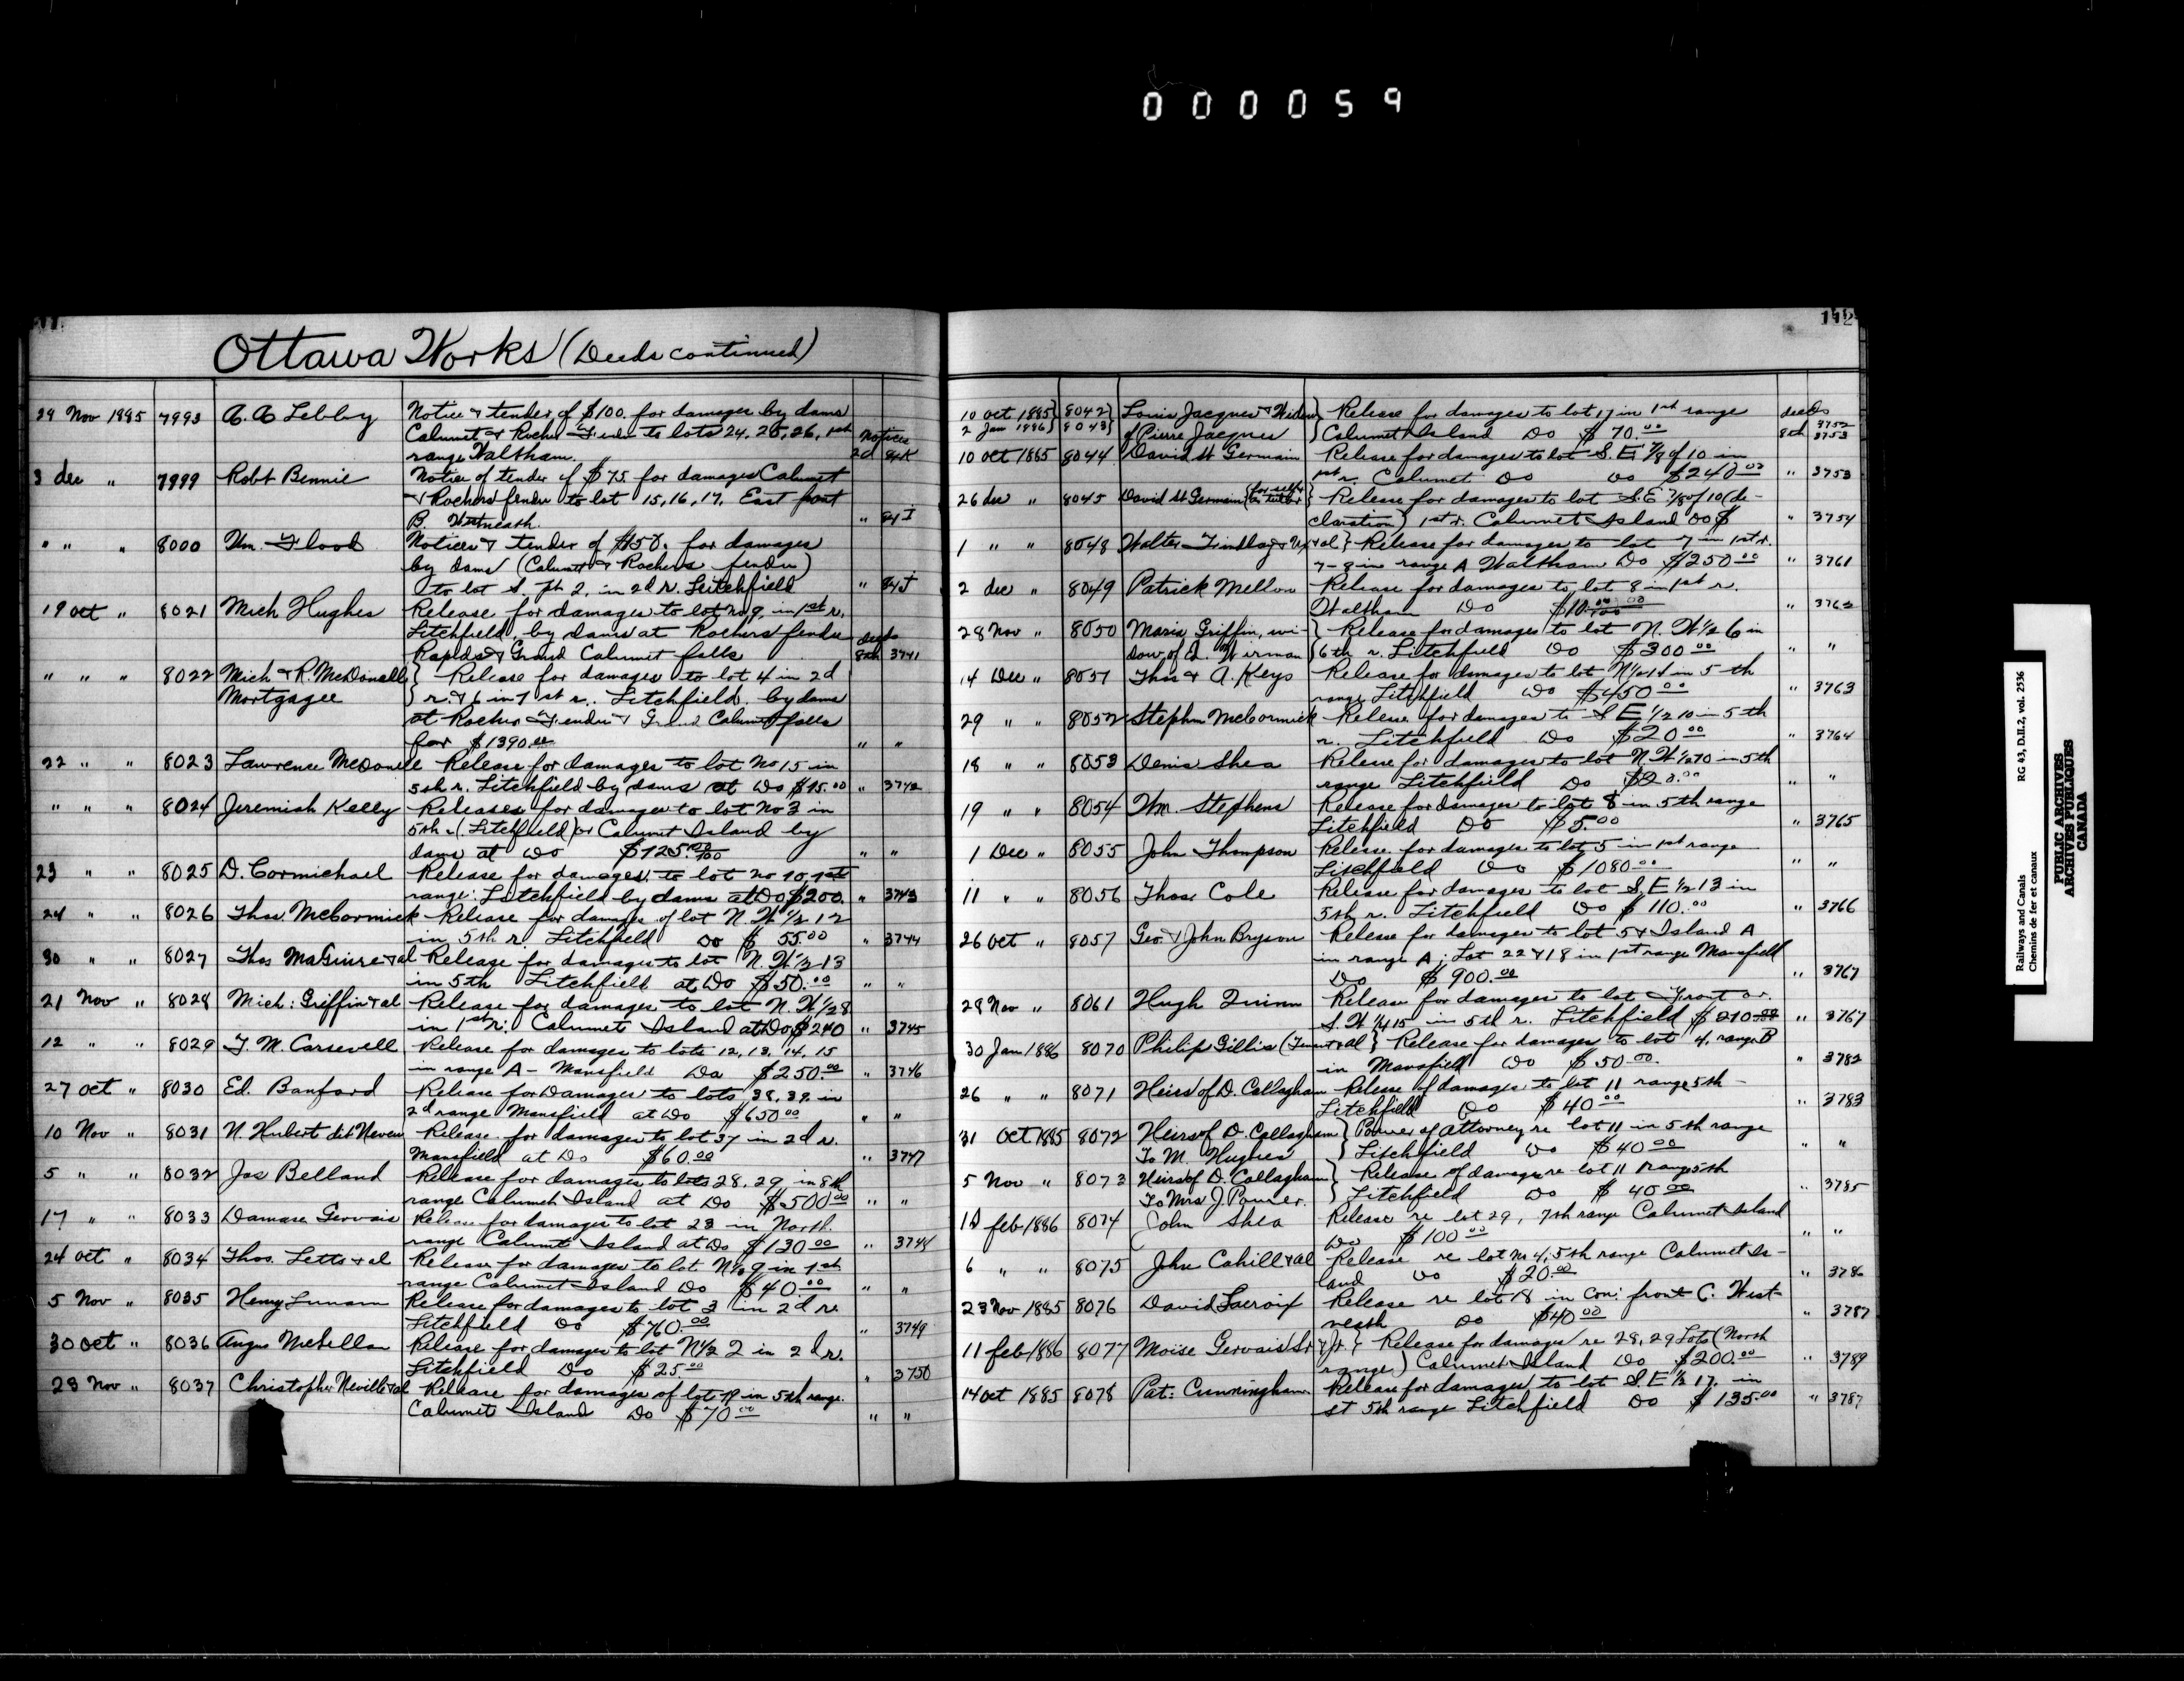 000059
112
Ottawa Works (Deeds continued)
29 Nov 1885 7993 A. A. Lebby Notice & tender of $100. for damages by dams
Calumet & Rocher Fendu to lots 24, 25, 26, 1st Notices
range Waltham. 2d 84K
3 dec " 7999 Robt Bennie Notice of tender of $75. for damages Calumet
& Rochers fendu to lot 15, 16, 17, East front
B. Westmeath. " 84I
" " " 8000 Wm. Flood Notices & tender of $150. for damages
by dams (Calumet & Rochers fendu)
to lot S. pt 2, in 2d r. Litchfield " 84J
19 oct " 8021 Mich Hughes Release for damages to lot no 9, in 1st r,
Litchfield, by dams at Rochers fendu deeds
Rapids & Grand Calumet falls 8th 3741
" " " 8022 Mich & R. McDonell } Release for damages to lot 4 in 2d
Mortgagee } r. & 6 in 1st r., Litchfield, by dams
at Rocher Fendu & Grand Calumet falls
for $1390.00 " "
22 " " 8023 Lawrence McDonell Release for damages to lot No 15 in
5th r. Litchfield by dams at Do $15.00 " 3742
" " " 8024 Jeremiah Kelly Releases for damages to lot No 3 in
5th (Litchfield) or Calumet Island by
dams at Do $125.00/100 " "
23 " " 8025 D. Cormichael Release for damages, to lot no 10, 1st
range: Litchfield by dams at Do $200. " 3743
24 " " 8026 Thos. McCormick Release for damages of lot N. W 1/2 12
in 5th r. Litchfield Do $55.00 " 3744
30 " " 8027 Thos MaGuire & al Release for damages to lot N. W 1/2 13
in 5th Litchfield at Do $50.00 " "
21 Nov " 8028 Mich: Griffin & al Release for damages to lot N. W 1/2 8
in 1st r: Calumet Island at Do $240 " 3745
12 " " 8029 T. M. Carsevell Release for damages to lots 12, 13, 14, 15
in range A - Mansfield Do $250.00 " 3746
27 oct " 8030 Ed. Banford Release for Damages to lots 38, 39 in
2d range Mansfield at Do $650.00 " "
10 Nov " 8031 N. Hubert dit Neveu Release for damages to lot 37 in 2d r.
Mansfield at Do $60.00 " 3747
5 " " 8032 Jos Belland Release for damages to lots 28, 29 in 8th
range Calumet Island at Do $500.00 " "
17 " " 8033 Damase Gervais Release for damages to lot 23 in North
range Calumet Island at Do $130.00 " 3748
24 oct " 8034 Thos. Letts & al Release for damages to lot N 1/2 9 in 1st
range Calumet Island Do $40.00 " "
5 Nov " 8035 Henry Lunam Release for damages to lot 3 in 2d re
Litchfield Do $760.00 " 3749
30 oct " 8036 Angus McLellan Release for damages to lot N 1/2 2 in 2d r.
Litchfield Do $25.00 " 3750
28 Nov " 8037 Christopher Neville & al Release for damages of lot 19 in 5th range
Calumet Island Do $70.00 " "
10 oct 1885 } 8042 } Louis Jacques & Widow } Release for damages to lot 17 in 1st range deeds 3752
2 Jan 1886 } 8043 } of Pierre Jacques } Calumet Island Do $70.00 8th 3753
10 oct 1885 8044 David St Germain Release for damages to lot S. E 7/8 of 10 in
1st r. Calumet Do Do $240.00 " 3753
26 dec " 8045 David St Germain (for self & as tutor } Release for damages to lot S.E 7/8 of 10 (de-
claration) 1st r. Calumet Island Do $ " 3754
1 " " 8048 Walter Findlay & al } Release for damages to lot 7 in 1st r.
7-8 in range A Waltham Do $250.00 " 3761
2 dec " 8049 Patrick Mellon Release for damages to lot 8 in 1st r.
Waltham Do $10.00 " 3762
28 Nov " 8050 Maria Griffin, wi- } Release for damages to lot N. W 1/2 6 in
dow of } 6th r. Litchfield Do $300.00 " "
14 Dec " 8051 Thos & A. Keys Release for damages to lot N 1/2 14 in 5th
range Litchfield Do $450.00 " 3763
29 " " 8052 Stephen McCormick Release for damages to S E 1/2 10 in 5th
r. Litchfield Do $20.00 " 3764
18 " " 8053 Denis Shea Release for damages to lot N. W 1/2 10 in 5th
range Litchfield Do $20.00 " "
19 " " 8054 Wm. Stephens Release for damages to lot 8 in 5th range
Litchfield Do $5.00 " 3765
1 Dec " 8055 John Thompson Release for damages to lot 5 in 1st range
Litchfield Do $1080.00 " "
11 " " 8056 Thos Cole Release for damages to lot S, E 1/2 13 in
5th r. Litchfield Do $110.00 " 3766
26 oct " 8057 Geo. & John Bryson Release for damages to lot 5 & Island A
in range A; Lot 22 & 18 in 1st range Mansfield
Do $900.00 " 3767
28 Nov " 8061 Hugh Quinn Release for damages to lot Front or
S. W 1/4 15 in 5th r. Litchfield $210.00 " 3767
30 Jan 1886 8070 Philip Gillis (Tenant & al } Release for damages to lot 4, range B
in Mansfield Do $50.00 " 3782
26 " " 8071 Heirs of D. Callaghan Release of damages to lot 11 range 5th
Litchfield Do $40.00 " 3783
31 Oct 1885 8072 Heirs of D. Callaghan } Power of Attorney re lot 11 in 5th range
To M. Hughes } Litchfield Do $40.00 " "
5 Nov " 8073 Heirs of D. Callaghan } Release of damages re lot 11 range 5th
To Mrs J. Power. } Litchfield Do $40.00 " 3785
10 feb 1886 8074 John Shea Release re lot 29, 7th range Calumet Island
Do $100.00 " "
6 " " 8075 John Cahill & al Release re lot No 4, 5th range Calumet Is-
land Do $20.00 " 3786
23 Nov 1885 8076 David Lacroix Release re lot 18 in Con: front C. West-
meath Do $40.00 " 3787
11 feb 1886 8077 Moise Gervais Sr & Jr. } Release for damages re 28, 29 Lots (North
range) Calumet Island Do $200.00 " 3789
14 oct 1885 8078 Pat: Cunningham Release for damages to lot S. E 1/2 17. in
st 5th range Litchfield Do $135.00 " 3787
Railways and Canals RG 43, D.II.2, vol. 2536
Chemins de fer et canaux
PUBLIC ARCHIVES
ARCHIVES PUBLIQUES
CANADA